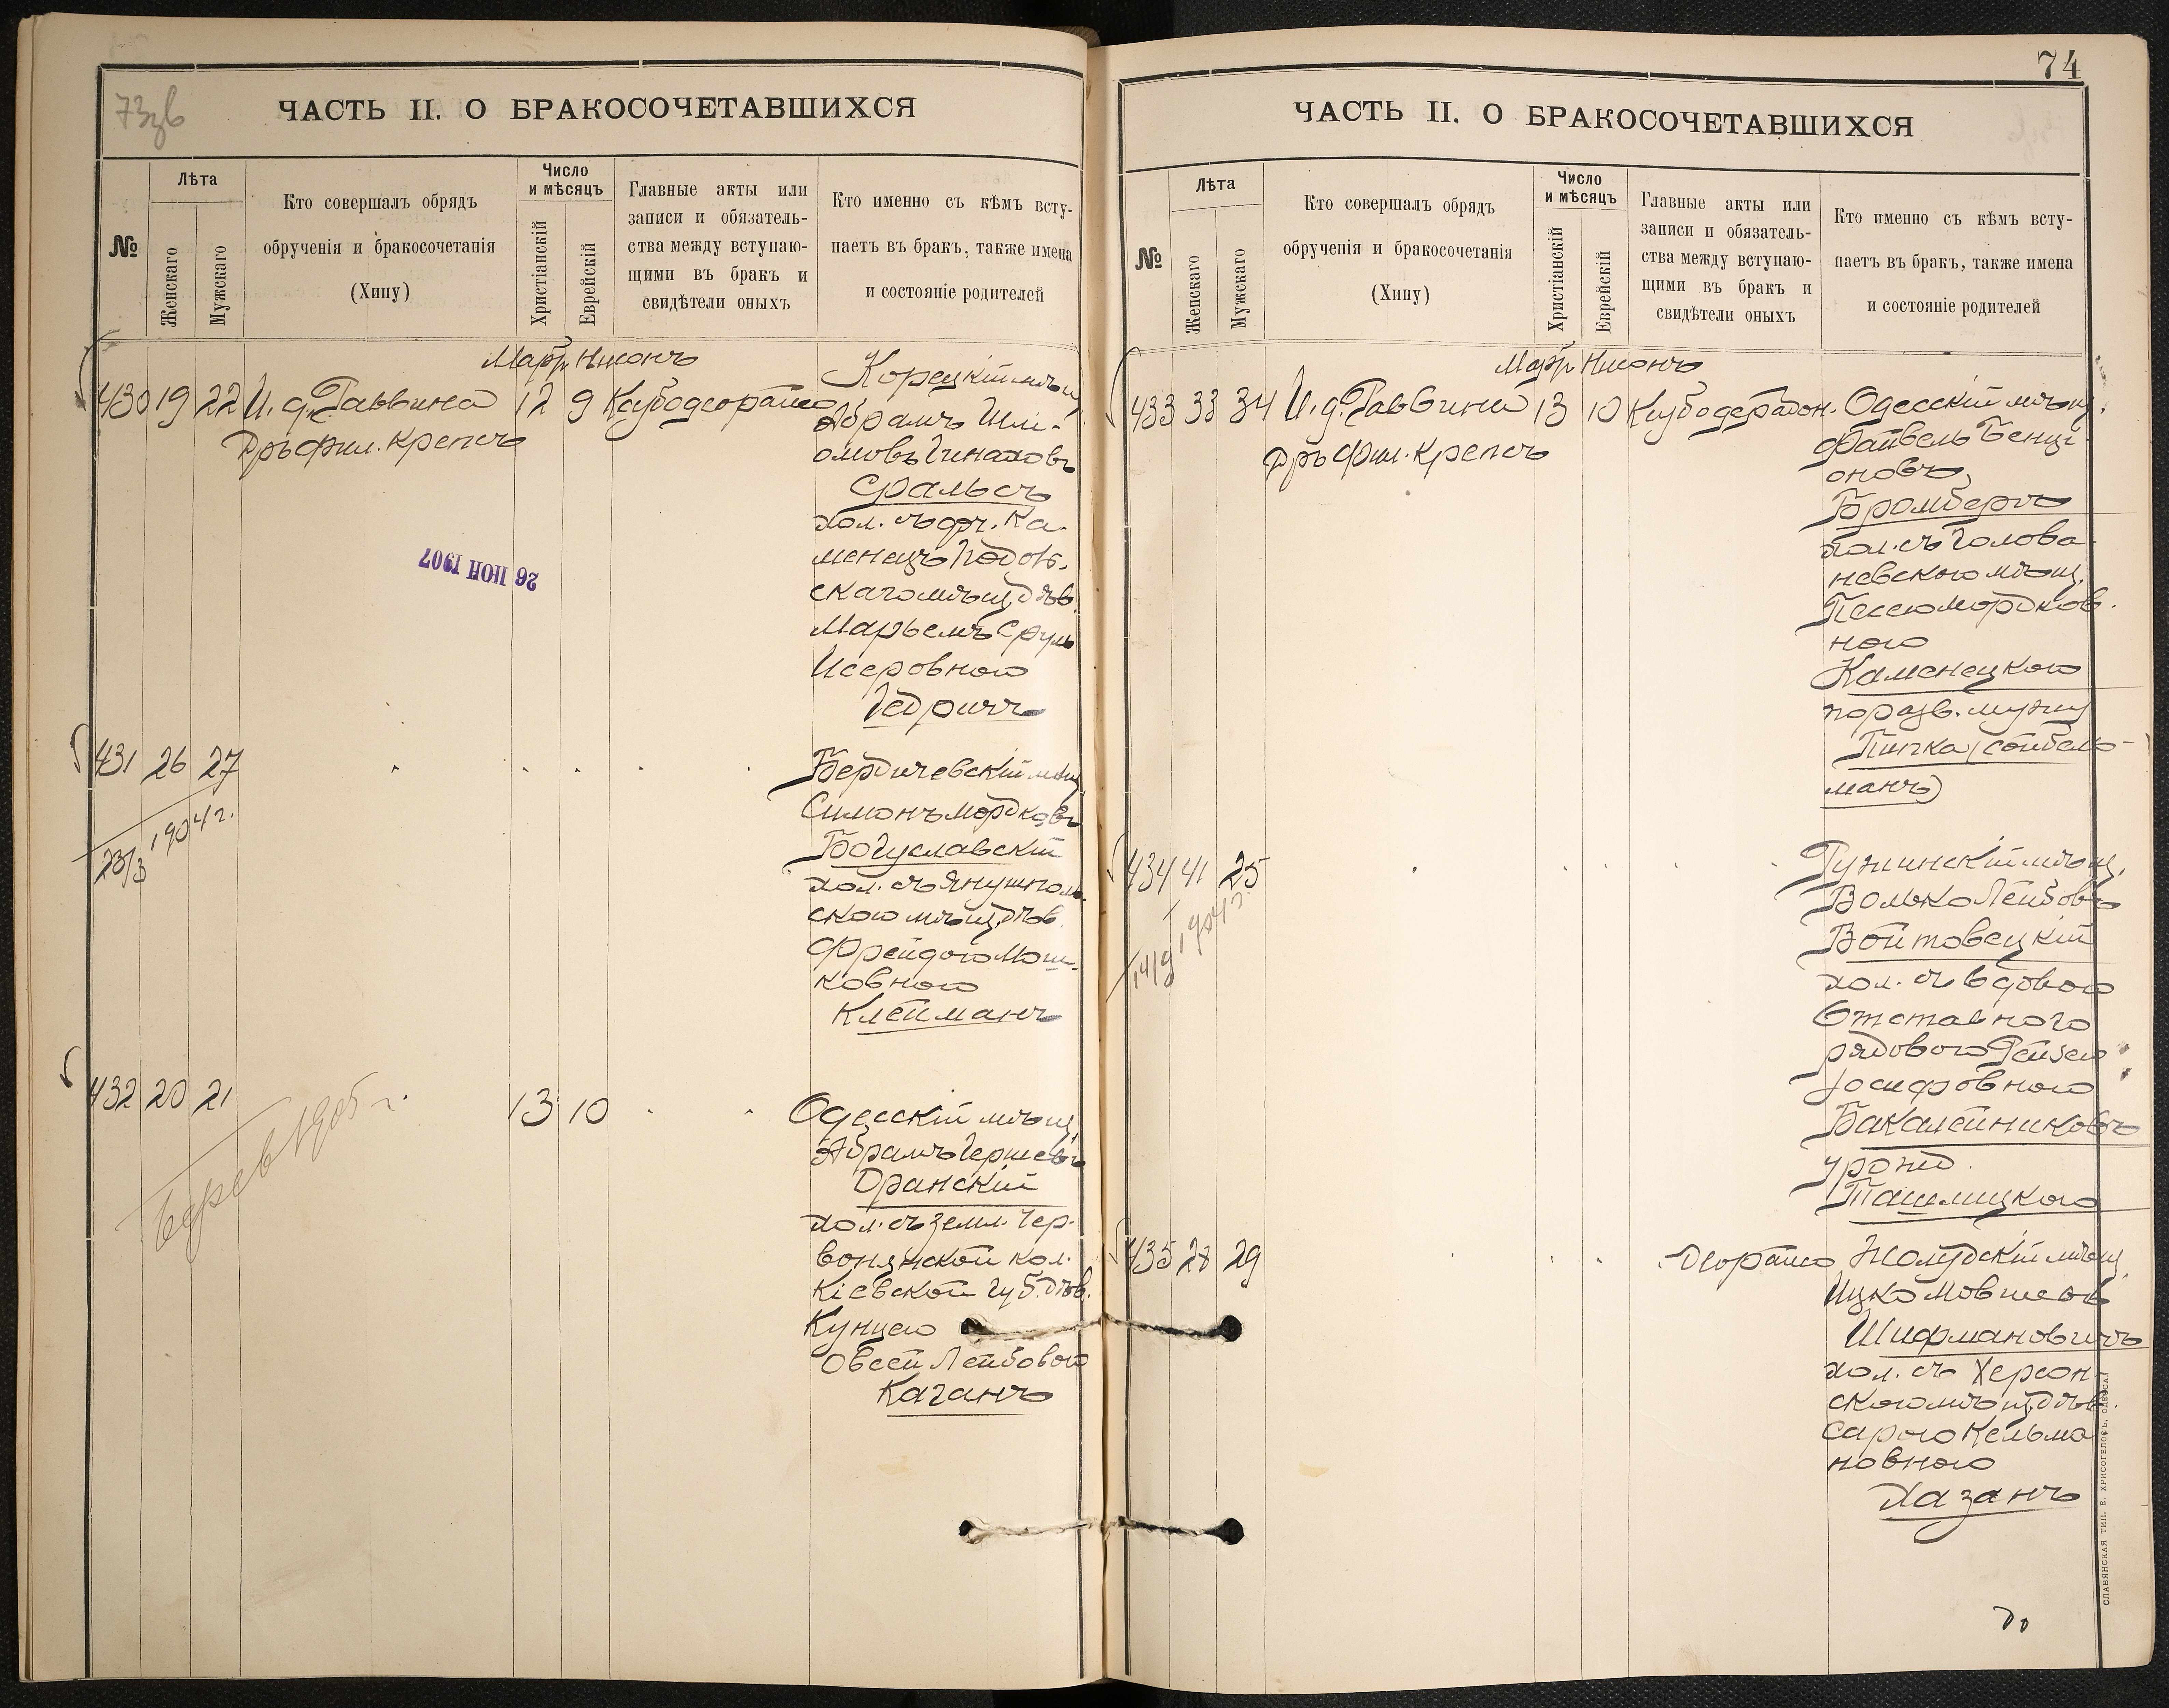 73зв
ЧАСТЬ II. О БРАКОСОЧЕТАВШИХСЯ
№
Лѣта
Женскаго
Мужскаго
Кто совершалъ обрядъ
обрученія и бракосочетанія
(Хипу)
Число
и мѣсяцъ
Христіанскій
Еврейскій
Главные акты или
записи и обязатель-
ства между вступаю-
щими въ бракъ и
свидѣтели оныхъ
Кто именно съ кѣмъ всту-
паетъ въ бракъ, также имена
и состояніе родителей
Мартъ Нисонъ
430 19 22 И. д. Раввина 12 9
Дръ Фил. Крепсъ
Корецкій мѣщ.
Абрамъ Шлі-
омовъ
хол. съ Ка-
менецъ Подоль-
скаго мѣщ. дѣв.
Марьемъ Сруль
Исеровною
Гедричъ
26 ІЮН 1907
431 26 27
23/3 1904 г.
Бердичевскій мѣщ.
Симонъ Мордковъ
Богуславскій
хол. съ Янушполь-
скою мѣщ. дѣв.
Фрейдою Мош-
ковною
Клейманъ
432 20 21 13 10
1905 г.
Одесскій мѣщ.
Абрамъ Гершевъ
Дранскій
хол. съ земл. Чер-
вонянской кол.
Кіевской губ. дѣв.
Кунцею
Овсей Лейбовою
Каганъ
74
ЧАСТЬ II. О БРАКОСОЧЕТАВШИХСЯ
№
Лѣта
Женскаго
Мужскаго
Кто совершалъ обрядъ
обрученія и бракосочетанія
(Хипу)
Число
и мѣсяцъ
Христіанскій
Еврейскій
Главные акты или
записи и обязатель-
ства между вступаю-
щими въ бракъ и
свидѣтели оныхъ
Кто именно съ кѣмъ всту-
паетъ въ бракъ, также имена
и состояніе родителей
Мартъ Нисонъ
433 33 34 И. д. Раввина 13 10
Дръ Фил. Крепсъ
Одесскій мѣщ.
Файвель Бенці-
оновъ
Бромбергъ
хол. съ Голова-
невскою мѣщ.
Песею Мордков-
ною
Каменецкою
по разв. мужу
манъ)
434 41 25
14/9 1904 г.
Ружинскій мѣщ.
Волько Лейбовъ
Войтовецкій
хол. съ вдовою
Отставного
рядового Рейзею
Іосифовною
Бакалейниковъ
урожд.
Ташлицкою
435 28 29
Жолудскій мѣщ.
Ицко Мовшевъ
Шифмановичъ
хол. съ Херсон-
скою мѣщ. дѣв.
Сарою Кельма-
новною
Хазанъ
СЛАВЯНСКАЯ ТИП. Е. ХРИСОГЕЛОСЪ, ОДЕССА.